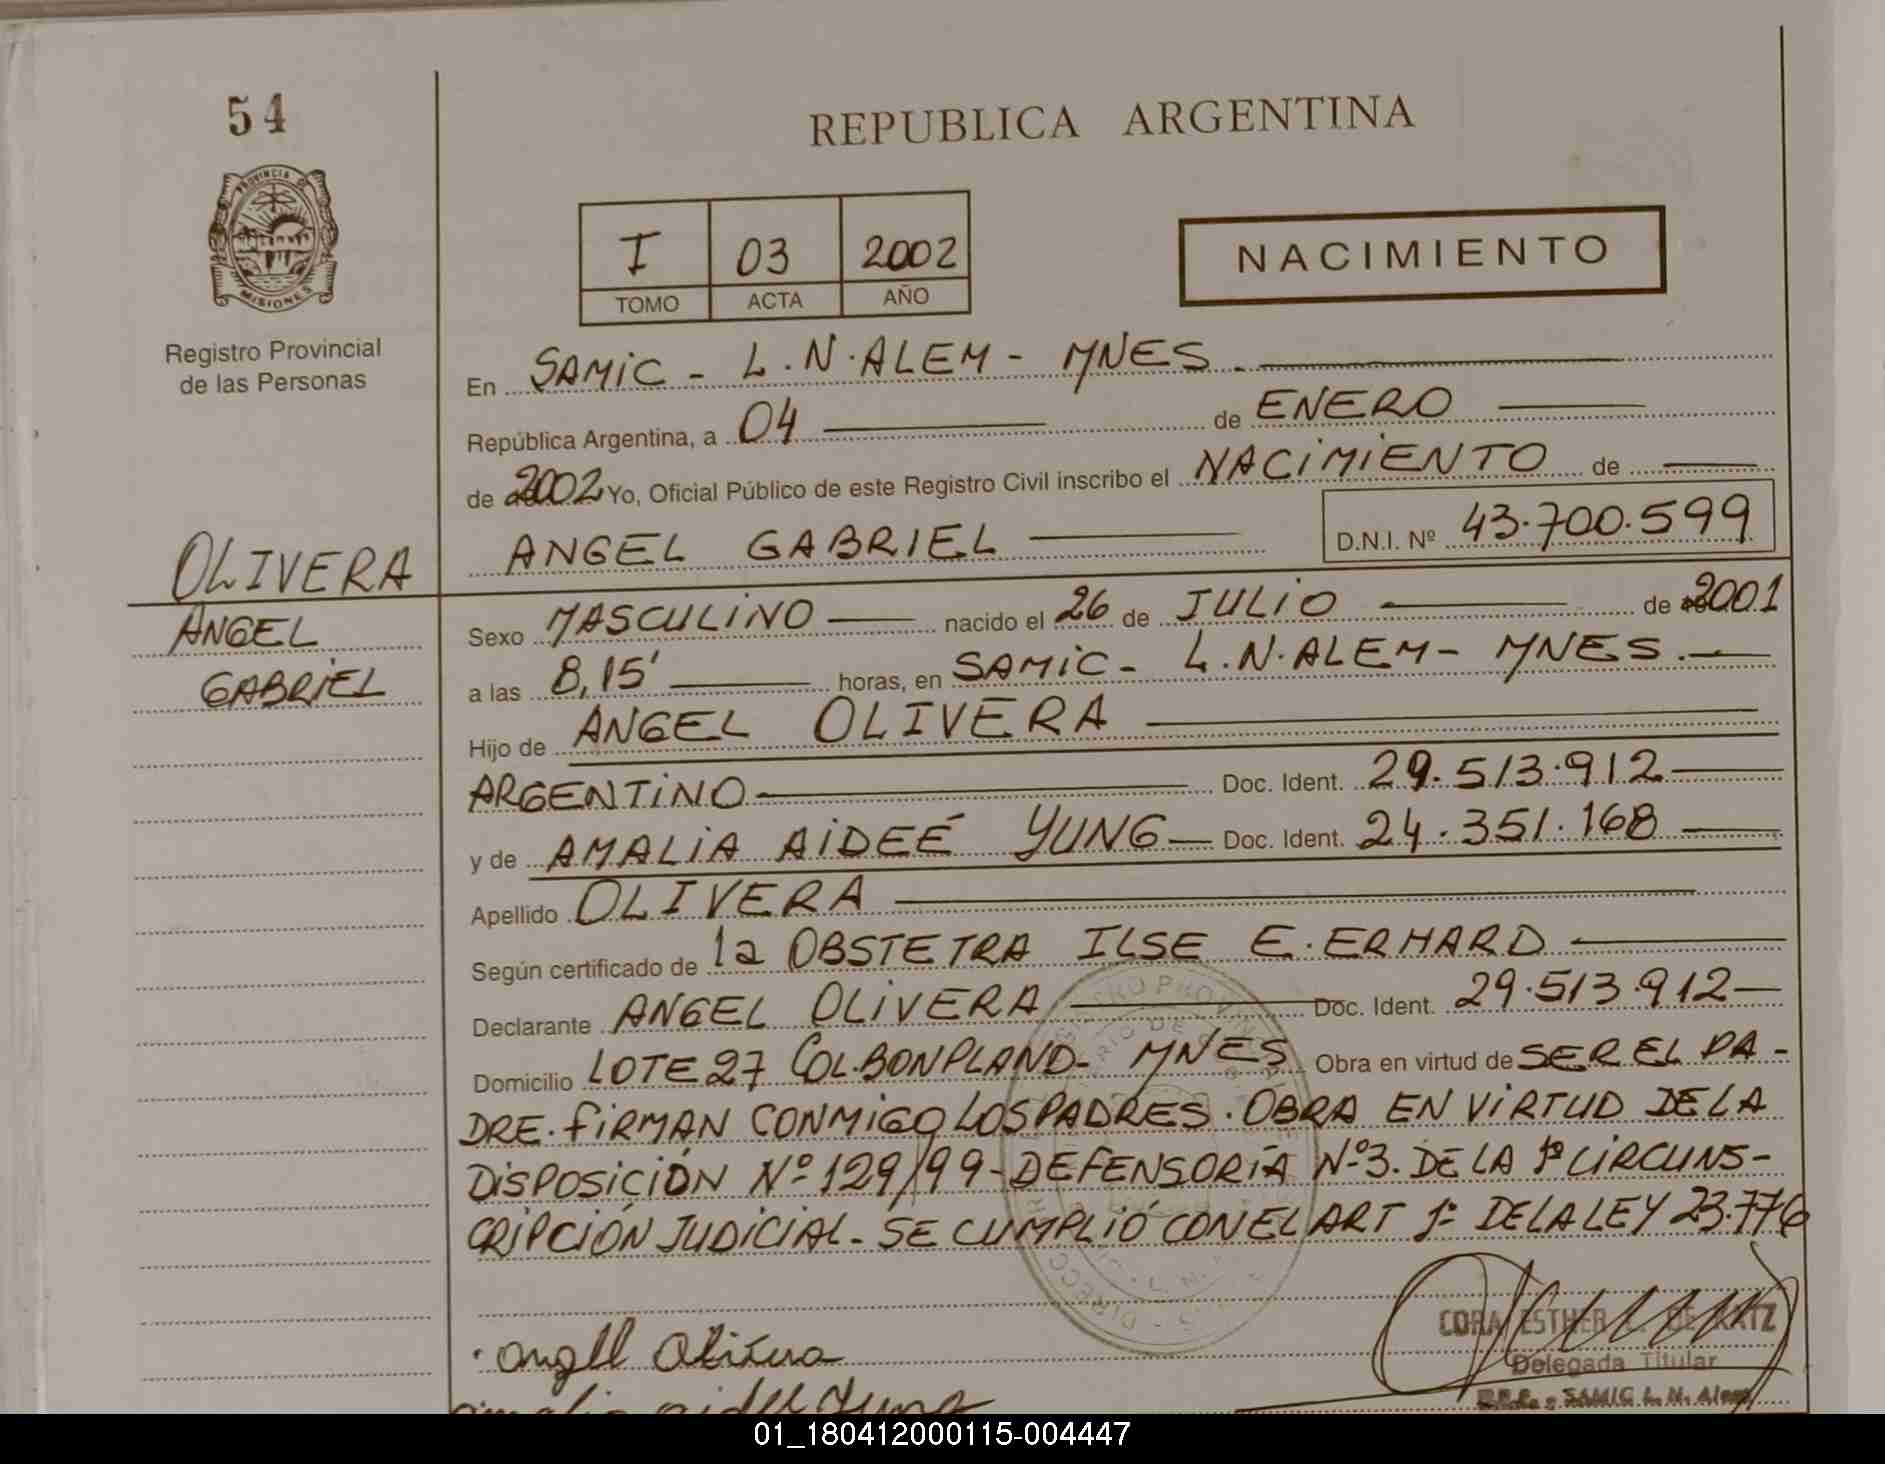 54
PROVINCIA DE
MISIONES
Registro Provincial
de las Personas
OLIVERA
ANGEL
GABRIEL
REPUBLICA ARGENTINA
I 03 2002
TOMO ACTA AÑO
NACIMIENTO
En SAMIC - L.N.ALEM - MNES.
República Argentina, a 04 de ENERO
de 2002 Yo, Oficial Público de este Registro Civil inscribo el NACIMIENTO de
ANGEL GABRIEL D.N.I. Nº 43.700.599
Sexo MASCULINO nacido el 26 de JULIO de 2001
a las 8,15' horas, en SAMIC - L.N.ALEM - MNES.
Hijo de ANGEL OLIVERA
ARGENTINO Doc. Ident. 29.513.912
y de AMALIA AIDEÉ YUNG Doc. Ident. 24.351.168
Apellido OLIVERA
Según certificado de la OBSTETRA ILSE E. ERHARD
Declarante ANGEL OLIVERA Doc. Ident. 29.513.912
Domicilio LOTE 27 COL.BONPLAND - MNES Obra en virtud de SER EL PA-
DRE. FIRMAN CONMIGO LOS PADRES. OBRA EN VIRTUD DE LA
DISPOSICIÓN Nº 129/99 - DEFENSORÍA Nº3. DE LA 1ª CIRCUNS-
CRIPCIÓN JUDICIAL - SE CUMPLIÓ CON EL ART 1º DE LA LEY 23.776
CORA ESTHER DE KATZ
Delegada Titular
SAMIC L. N. Alem
Angel Olivera
amalia aidee Yung
01_180412000115-004447